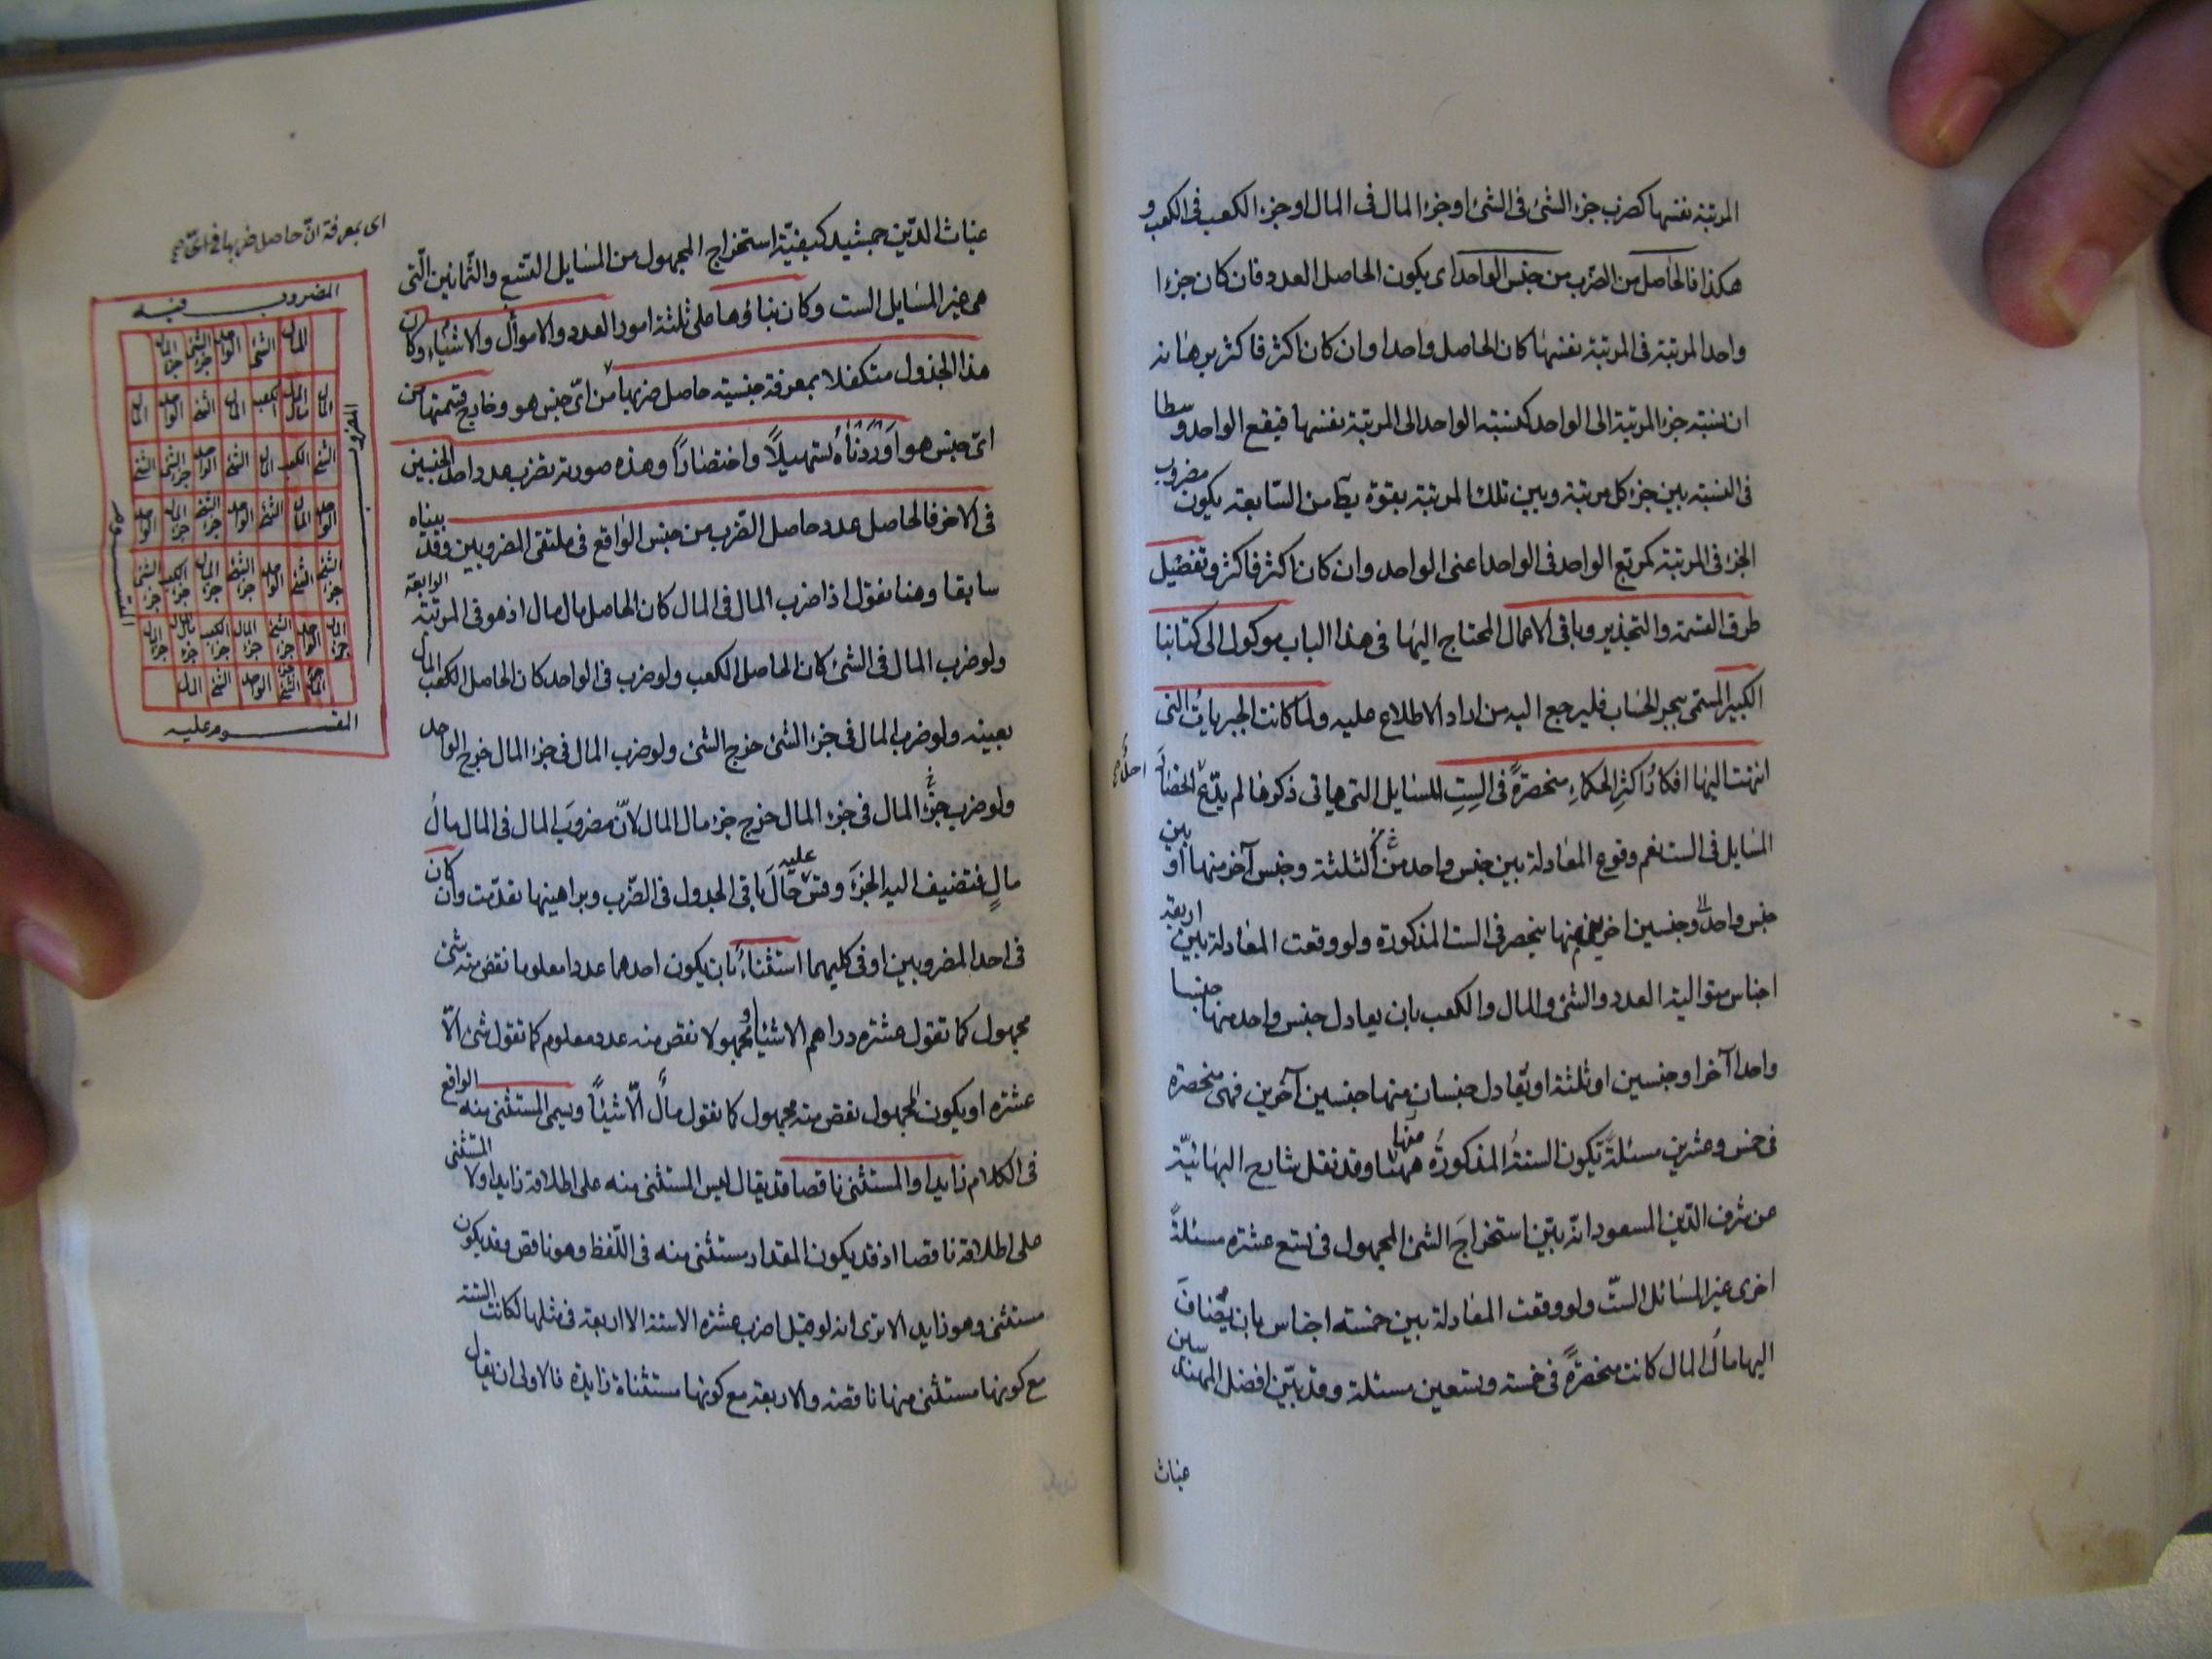 المرتبة نفسها كضرب جزء الشئ فى الشئ او جزء المال فى المال او جزء الكعب فى الكعب و
هكذا فالحاصل من الضرب من جنس الواحد اى يكون الحاصل العدد فان كان جزءا
واحد المرتبة فى المرتبة نفسها كان الحاصل واحدا وان كان اكثر فاكثر برهانه
ان نسبة جزء المرتبة الى الواحد كنسبة الواحد الى المرتبة نفسها فيقع الواحد وسطا
فى النسبة بين جزء كل مرتبة وبين تلك المرتبة بقوة من السّابعة يكون مضروب
الجزء فى المرتبة كمربع الواحد فى الواحد اعنى الواحد وان كان اكثر فاكثر وتفصيل
طرق القسمة والتجذير وباقى الاعمال المحتاج اليها فى هذا الباب موكول الى كتابنا
الكبير المسمى ببحر الحساب فليرجع اليه من اراد الاطلاع عليه ولما كانت الجبريات التى
انتهت اليها افكار اكثر الحكماء منحصرة فى الست المسايل التى ياتى ذكرها لم يدّع انحصار
المسايل فى الست نعم وقوع المعادلة بين جنس واحد من الثلثة وجنس آخر منها او بين
جنس واحد وجنسين اخرين منها ينحصر فى الست المذكورة ولو وقعت المعادلة بين اربعة
اجناس متوالية العدد والشئ والمال والكعب بان يعادل جنس واحد منها جنسا
واحدا آخر او جنسين او ثلثة او يعادل جنسان منها جنسين آخرين فهى منحصرة
فى خمس وعشرين مسئلة تكون الستة المذكورة ههنا منها وقد نقل شارح البهائيّة
عن شرف الدّين المسعود انّه بيّن استخراج الشئ المجهول فى تسع عشرة مسئلة
اخرى غير المسائل الستّ ولو وقعت المعادلة بين خمسة اجناس بان يضاف
اليها مال المال كانت منحصرة فى خمسة وتسعين مسئلة وقد بيّن افضل المهندسين
غياث
غياث الدّين جمشيد كيفيّة استخراج المجهول من المسايل التسع والثمانين الّتى
هى غير المسايل الست وكان بناؤها على ثلثة امور العدد والاموال والاشياء وكان
هذا الجدول متكفلا بمعرفة جنسية حاصل ضربها من اىّ جنس هو وخارج قسمتها من
اىّ جنس هو اوردناه تسهيلا واختصارا وهذه صورته تضرب عدد احد الجنسين
فى الاخر فالحاصل عدد حاصل الضرب من جنس الواقع فى ملتقى المضروبين وقد بيناه
سابقا وهنا نقول اذا ضرب المال فى المال كان الحاصل مال مال اذ هو فى المرتبة الرابعة
ولو ضرب المال فى الشئ كان الحاصل الكعب ولو ضرب فى الواحد كان الحاصل المال
بعينه ولو ضرب المال فى جزء الشئ خرج الشئ ولو ضرب المال فى جزء المال خرج الواحد
ولو ضرب جزء المال فى جزء المال خرج جزء مال المال لانّ مضروب المال فى المال مال
مال فتضيف اليه الجزء وقس عليه حال باقى الجدول فى الضّرب وبراهينها تقدّمت وان كان
فى احد المضروبين او فى كليهما استثناء بان يكون احدهما عددا معلوما نقص منه شئ
مجهول كما تقول عشرة دراهم الا شيئا او مجهولا نقص منه عدد معلوم كما تقول شئ الّا
عشرة او يكون المجهول نقص منه مجهول كما نقول مال الّا شيئا ويسمى المستثنى منه الواقع
فى الكلام زايدا والمستثنى ناقصا قد يقال ليس المستثنى منه على اطلاقه زايدا ولا المستثنى
على اطلاقه ناقصا اذ قد يكون المقدار مستثنى منه فى اللّفظ وهو ناقص وقد يكون
مستثنى وهو زايد الا ترى انه لو قيل اضرب عشرة الا ستة الا اربعة فى مثلها لكانت الستة
مع كونها مستثنى منها ناقصة والاربعة مع كونها مستثناة زايدة فالاولى ان يقال
اى بمعرفة انّ حاصل ضربها فى
المضروب فيه
المال الشئ الواحد جزء الشئ جزء المال
المال مال المال الكعب المال الشئ الواحد المال
الشئ الكعب المال الشئ الواحد جزء الشئ الشئ
الواحد المال الشئ الواحد جزء الشئ جزء المال الواحد
جزء الشئ الشئ الواحد جزء الشئ جزء المال جزء الكعب جزء الشئ
جزء المال الواحد جزء الشئ جزء المال جزء الكعب جزء مال المال جزء المال
جزء المال جزء الشئ الواحد الشئ المال
المضروب
المقسوم
المقسوم عليه